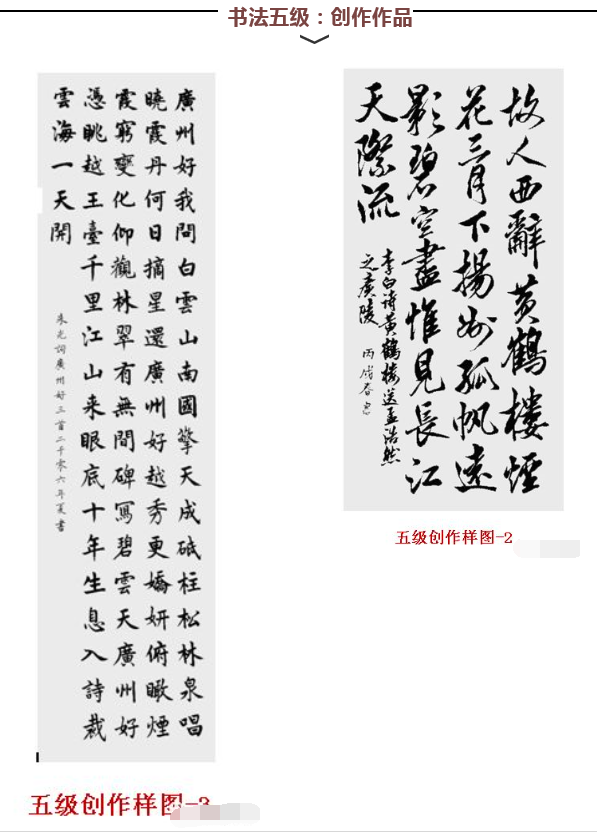 书法五级：创作作品
廣州好我問白雲山南國擎天成砥柱松林泉唱
曉霞丹何日摘星還廣州好越秀更嬌妍俯瞰煙
霞窮變化仰觀林翠有無間碑寫碧雲天廣州好
憑眺越王臺千里江山来眼底十年生息入詩裁
雲海一天開
朱光詞廣州好三首二千零六年夏書
五级创作样图-3
故人西辭黄鶴樓煙
花三月下揚州孤帆遠
影碧空盡惟見長江
天際流
李白诗黄鶴樓送孟浩然
之廣陵 丙戌春
五级创作样图-2